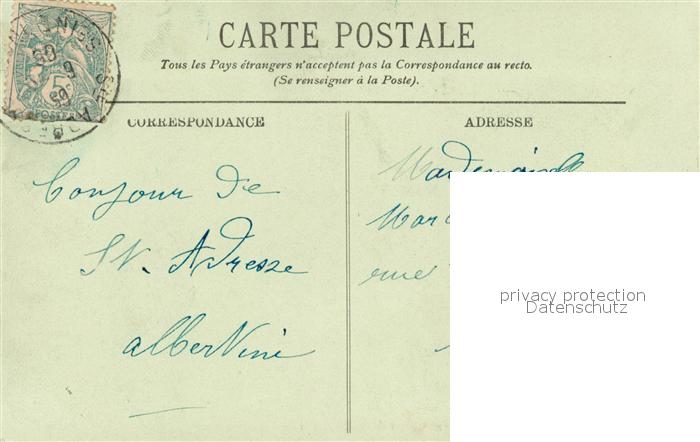 CARTE POSTALE
Tous les Pays étrangers n'acceptent pas la Correspondance au recto.
(Se renseigner à la Poste).
CORRESPONDANCE
ADRESSE
Bonjour de
St. Adresse
Albertini
Mademoiselle
rue
privacy protection
Datenschutz